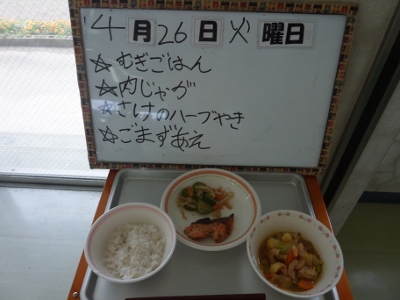 4月26日火曜日
☆むぎごはん
☆肉じゃが
☆さけのハーブやき
☆ごまずあえ